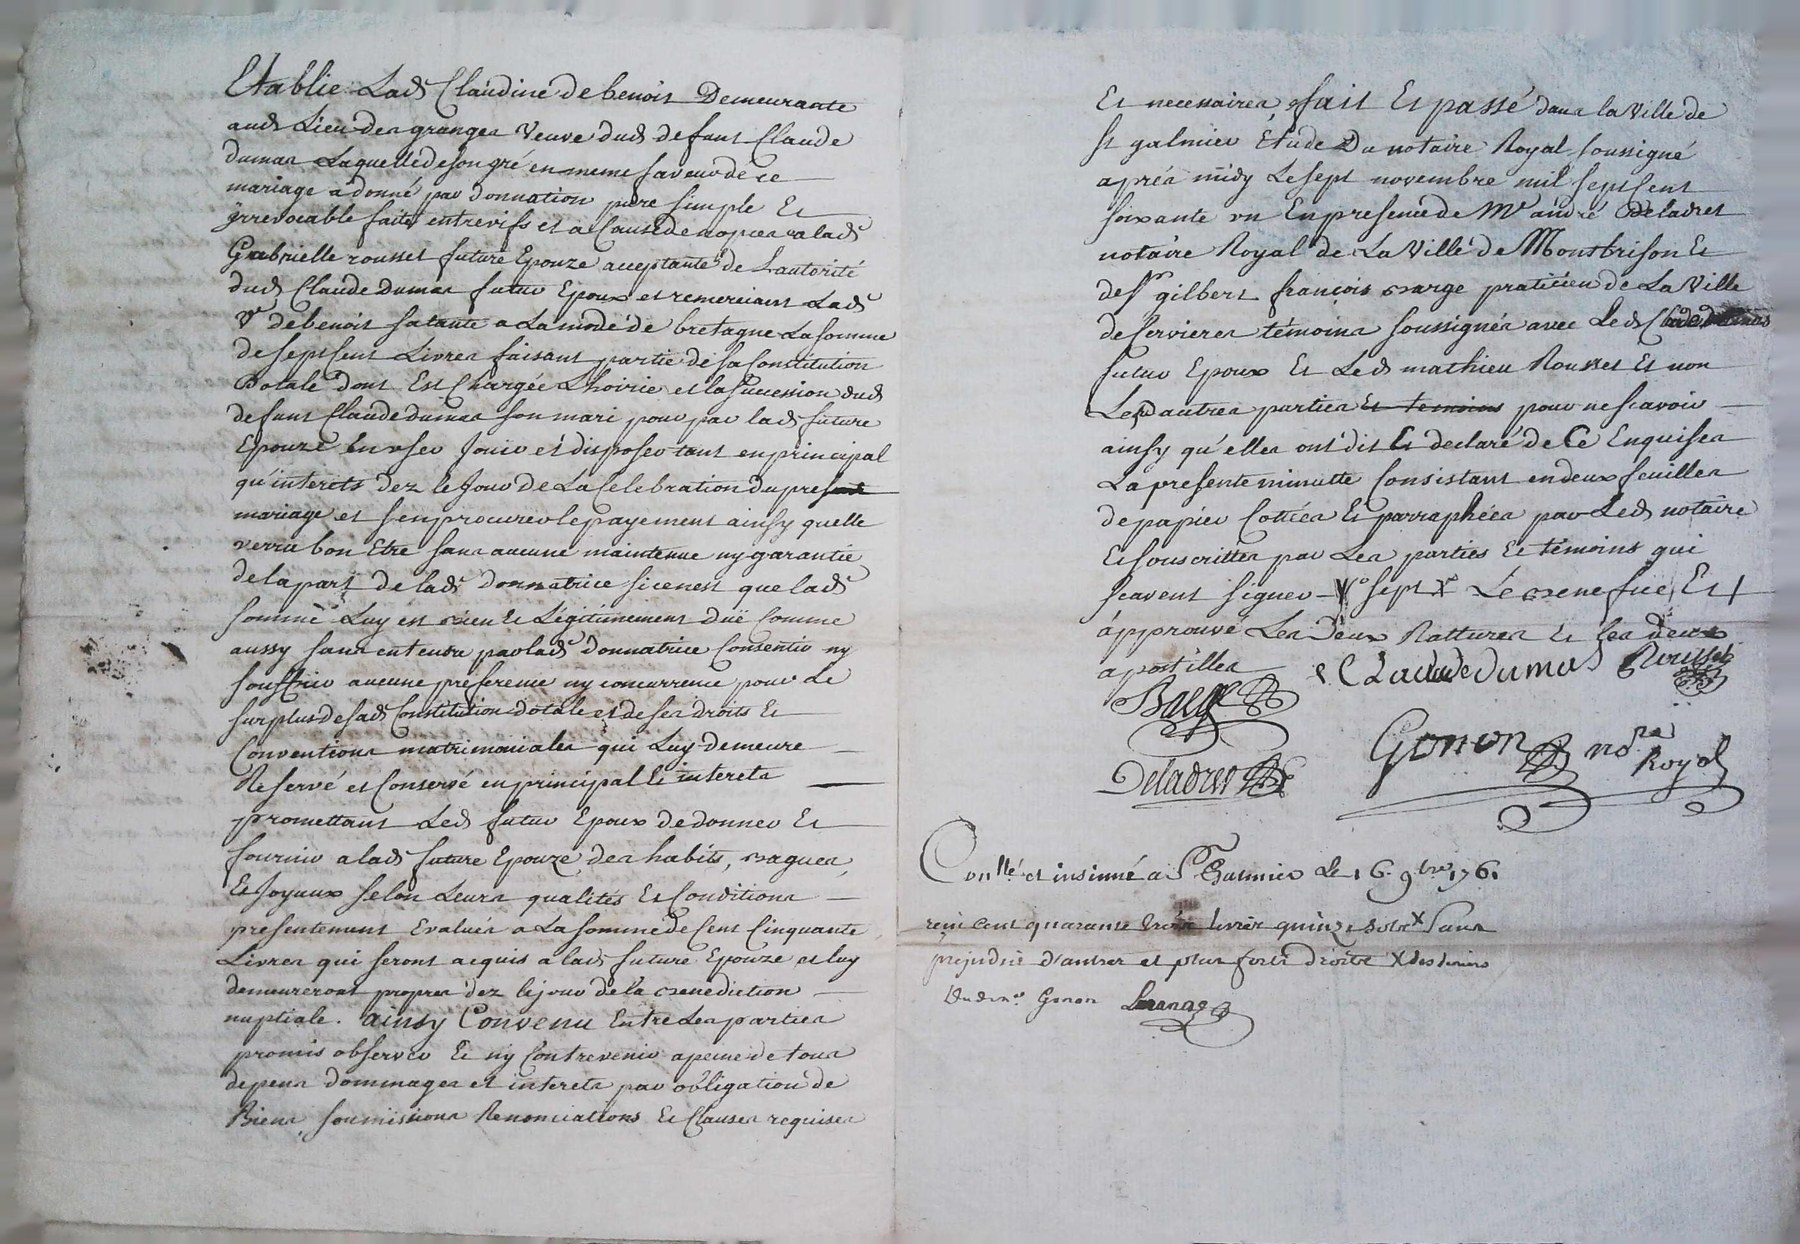 Etablie Lad Claudine debenoit Demeurante
aud Lieu des granges Veuve dud defunt Claude
dumas Laquelle de son gré en meme faveur de ce
mariage a donné par donnation pure simple Et
yrrevocable faite entrevifs et a Cause de nopces a lad
Gabrielle rousset future Epouze acceptante de Lautorité
dud Claude Dumas futur Epoux et remerciant Lad
Ve debenoit sa tante a La mode de bretagne La somme
de sept sent Livres faisant partie de sa Constitution
Dotale dont Est Chargée Lhoirie et la Succession dud
defunt Claude dumas son mari pour par lad future
Epouze En user Jouir et disposer tant en principal
qu'interets dez le Jour de La Celebration du present
mariage et s'en procurer le payement ainsy quelle
verra bon Etre sans aucune maintenue ny garantie
de la part de lad donnatrice si cenest que lad
somme Luy est bien Et Légitimement düe Comme
aussy sans entendre par lad donnatrice Consentir ny
souffrir aucune preference ny concurrence pour Le
surplus de sad Constitution dotale et de ses droits Et
Conventions matrimoniales qui Luy demeure
Reservé et Conservé en principal Et interets
promettant Led futur Epoux de donner Et
fournir a lad future Epouze des habits, bagues,
Et Joyaux selon Leurs qualités Et Conditions
presentement Evalués a La somme de Cent Cinquante
Livres qui seront acquis a lad future Epouze et luy
demeureront propres dez le jour de la benediction
nuptiale. ainsy Convenu Entre Les parties
promis observer Et ny Contrevenir a peine de tous
depens dommages et interets par obligation de
Biens, soumissions Renonciations Et Clauses requises
Et necessaires, fait Et passé dans la Ville de
st galmier Étude Du notaire Royal soussigné
aprés midy Le sept novembre mil sept sent
soixante un En presence de Mr andré Deladret
notaire Royal de La Ville de Montbrison Et
de sr gilbert françois barge praticien de La Ville
de servieres témoins soussignés avec Led Claude Dumas
futur Epoux Et Led mathieu Rousset Et non
Les autres parties Et temoins pour ne scavoir
ainsy qu'elles ont dit Et declaré de Ce Enquises
La presente minutte Consistant en deux feuilles
de papier Cottées Et parraphées par Led notaire
Et souscrittes par Les parties Et témoins qui
scavent signer sept Le Et
approuvé Les Deux Rattures Et les deux
apostilles
C Laude dumas Rousset
Barge
Gonon nore Royal
Deladret
Conllé et insinué a St Galmier Le 16. 9bre 1761
reçu cent quarante trois livres quinze sols X Sans
prejudice d'autres et plus forts droits X des deniers
dud me Gonon